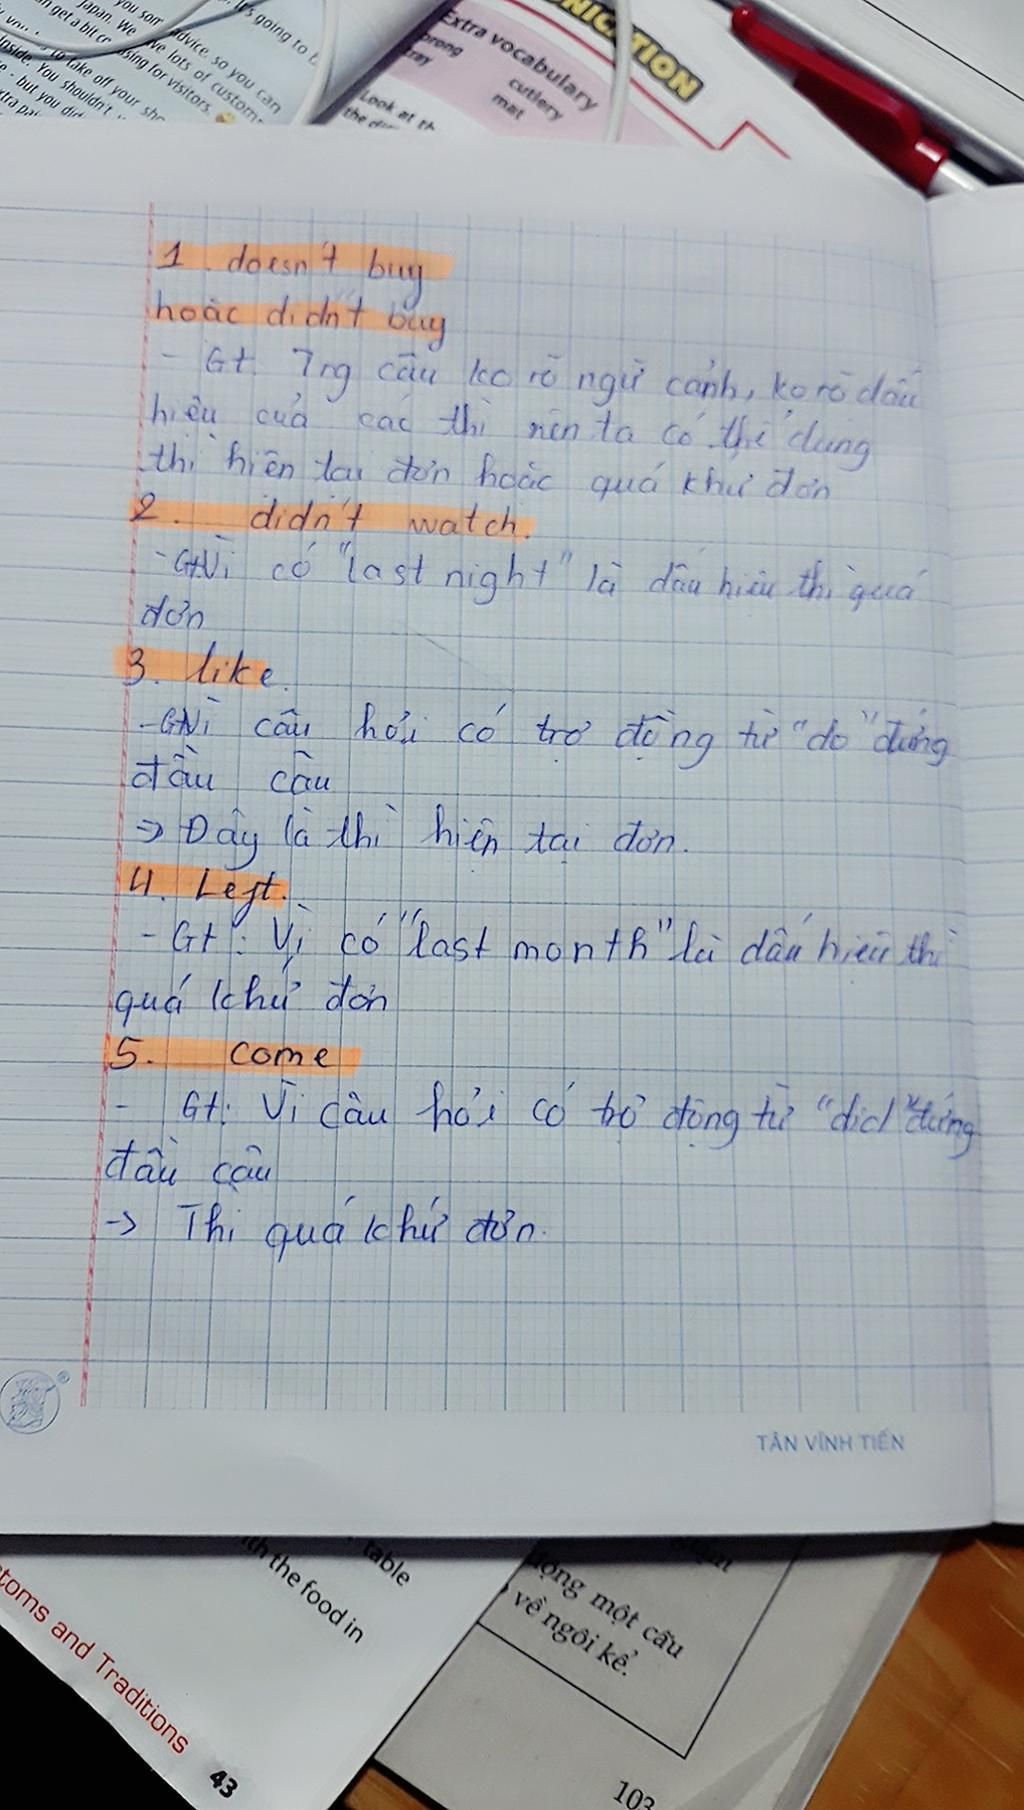 you som advice. so you can
Japan. We ve lots of custom
get a bit co sing for visitors.
take off your sho
inside. You shouldn't
- but you did
It's going to
Extra vocabulary
cutlery
mat
Look at th
NICATION
1. doesn't buy
hoặc didn't buy
- Gt. Trg câu ko rõ ngữ cảnh, ko rõ dấu
hiệu của các thì nên ta có thể dùng
thì hiện tại đơn hoặc quá khứ đơn
2. didn't watch.
- Gt Vì có "last night" là dấu hiệu thì quá
đơn
3. like.
- Gt Vì câu hỏi có trợ động từ "do" đứng
đầu câu
=> Đây là thì hiện tại đơn.
4. Left.
- Gt: Vì có "last month" là dấu hiệu thì
quá khứ đơn
5. come
- Gt: Vì câu hỏi có trợ động từ "did" đứng
đầu câu
-> Thì quá khứ đơn.
TÂN VĨNH TIẾN
table
th the food in
toms and Traditions
43
ộng một câu
về ngôi kể.
103